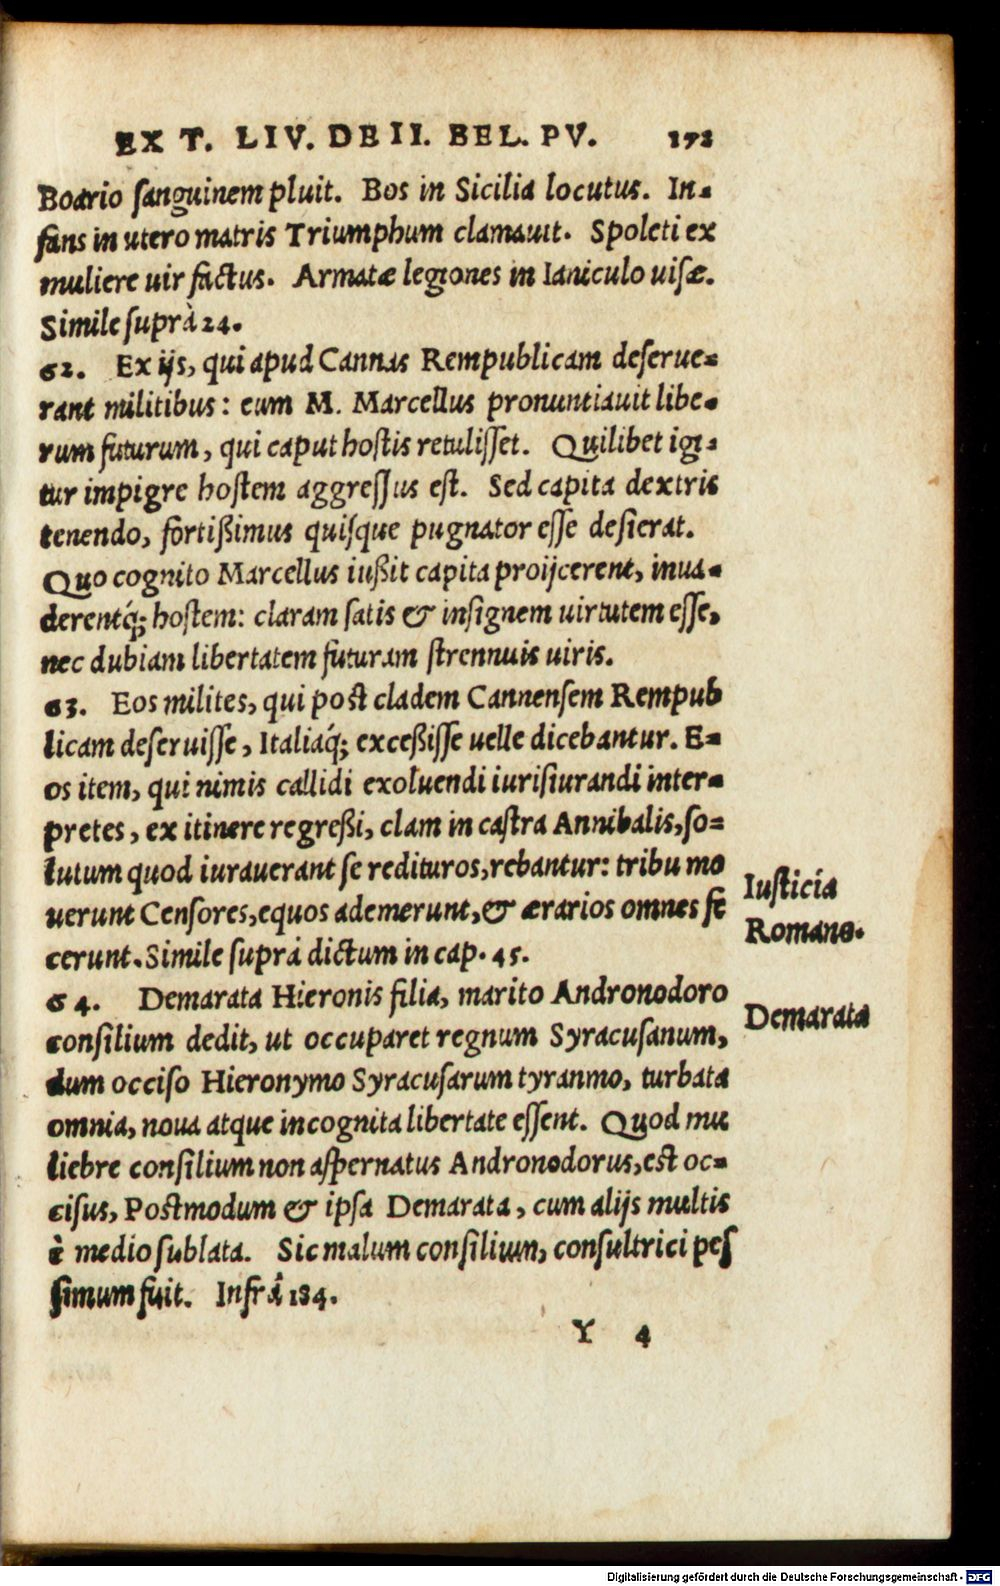 EX T. LIV. DE II. BEL. PV. 172
Boario sanguinem pluit. Bos in Sicilia locutus. In-
fans in utero matris Triumphum clamauit. Spoleti ex
muliere uir factus. Armatæ legiones in Ianiculo uisæ.
Simile suprà 24.
62. Ex ijs, qui apud Cannas Rempublicam deserue-
rant militibus: eum M. Marcellus pronuntiauit libe-
rum futurum, qui caput hostis retulisset. Quilibet igi-
tur impigre hostem aggressus est. Sed capita dextris
tenendo, fortißimus quisque pugnator esse desierat.
Quo cognito Marcellus iußit capita proijcerent, inua-
derentq́; hostem: claram satis & insignem uirtutem esse,
nec dubiam libertatem futuram strennuis uiris.
63. Eos milites, qui post cladem Cannensem Rempub
licam deseruisse, Italiaq́; exceßisse uelle dicebantur. E-
os item, qui nimis callidi exoluendi iurisiurandi inter-
pretes, ex itinere regreßi, clam in castra Annibalis, so-
lutum quod iurauerant se redituros, rebantur: tribu mo
uerunt Censores, equos ademerunt, & ærarios omnes fe
cerunt. Simile suprà dictum in cap. 45.
Iusticia
Romano.
64. Demarata Hieronis filia, marito Andronodoro
consilium dedit, ut occuparet regnum Syracusanum,
dum occiso Hieronymo Syracusarum tyranno, turbata
omnia, noua atque incognita libertate essent. Quod mu
liebre consilium non aspernatus Andronodorus, est oc-
cisus, Postmodum & ipsa Demarata, cum alijs multis
è medio sublata. Sic malum consilium, consultrici pes
simum fuit. Infrà 184.
Demarata
Y 4
Digitalisierung gefördert durch die Deutsche Forschungsgemeinschaft - DFG